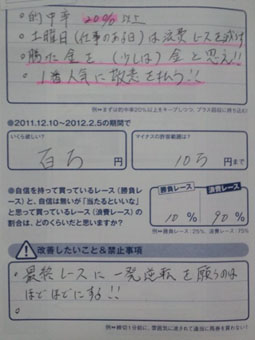 ・的中率 20%以上
・土曜日(仕事のある日)は浪費レースを減す
・勝た金を(少しは)金と思え!!
・1番人気に敬意を払う!!
例➡まずは的中率20%以上をキープしつつ、プラス回収に持ち込む
●2011.12.10〜2012.2.5の期間で
いくら欲しい?
百万 円
マイナスの許容範囲は?
10万 円まで
●自信を持って買っているレース(勝負レース)と、自信は無いが「当たるといいな」と思って買っているレース(浪費レース)の割合は、どのくらいだと思いますか?
勝負レース
浪費レース
10%
90%
例➡勝負レース:25%、浪費レース:75%
改善したいこと&禁止事項
・最終レースに一発逆転を願うのは
ほどほどにする!!
例➡締切1分前に、雰囲気に流されて適当に馬券を買わない!